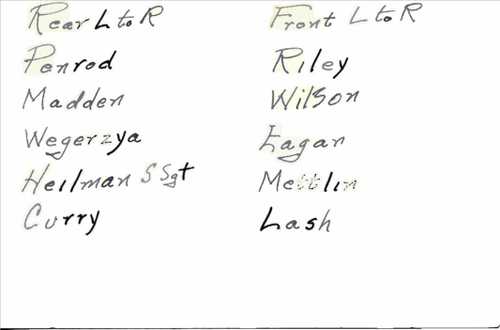 Rear L to R
Penrod
Madden
Wegerzya
Heilman SSgt
Curry
Front L to R
Riley
Wilson
Eagan
Mettlin
Lash